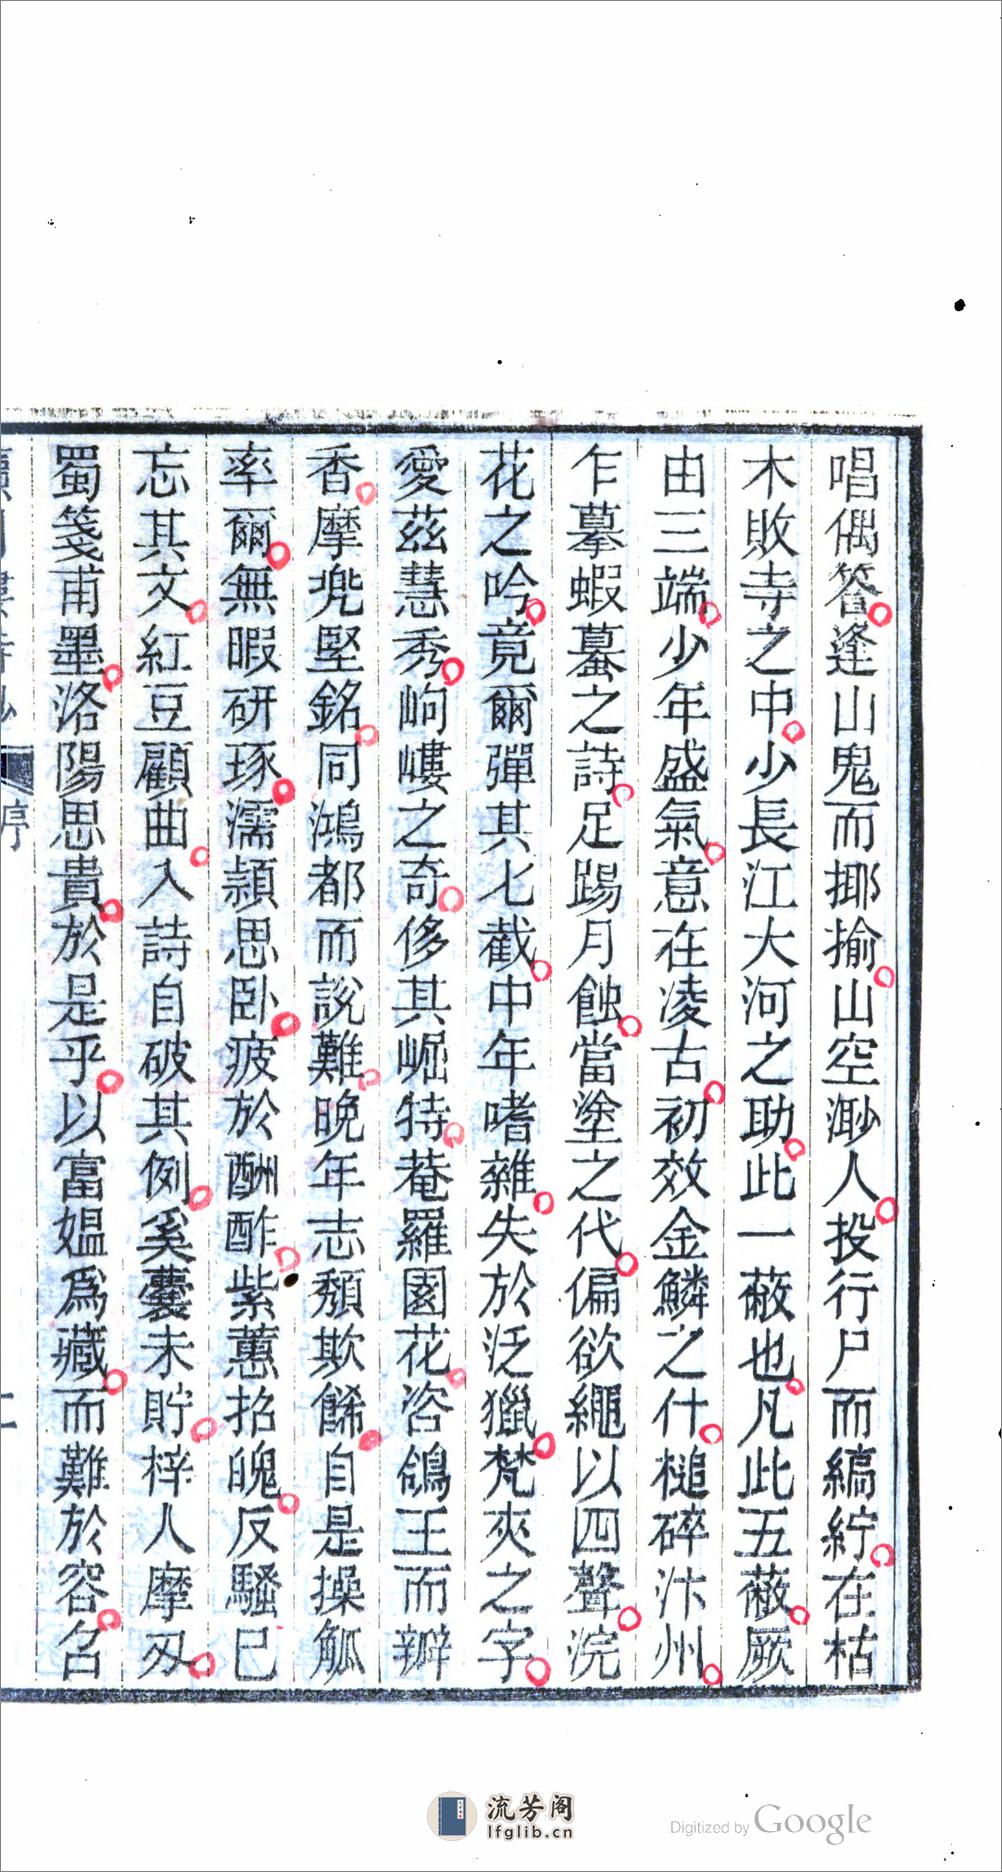 唱偶答逢山鬼而揶揄山空渺人投行尸而縞紵在枯
木敗寺之中少長江大河之助此一蔽也凡此五蔽厥
由三端少年盛氣意在凌古初效金鱗之什槌碎汴州
乍摹蝦蟇之詩足踢月蝕當塗之代偏欲繩以四聲浣
花之吟竟爾彈其七截中年嗜雜失於泛獵梵夾之字
愛茲慧秀岣嶁之奇侈其崛特菴羅園花咨鴿王而辦
香摩兠堅銘同鴻都而說難晚年志頽欺餙自是操觚
率爾無暇研琢濡頴思臥疲於酬酢紫蕙招魄反騷已
忘其文紅豆顧曲入詩自破其例奚囊未貯梓人摩刄
蜀箋甫墨洛陽思貴於是乎以富媼爲藏而難於容名
序
二
流芳阁
lfglib.cn
Digitized by Google